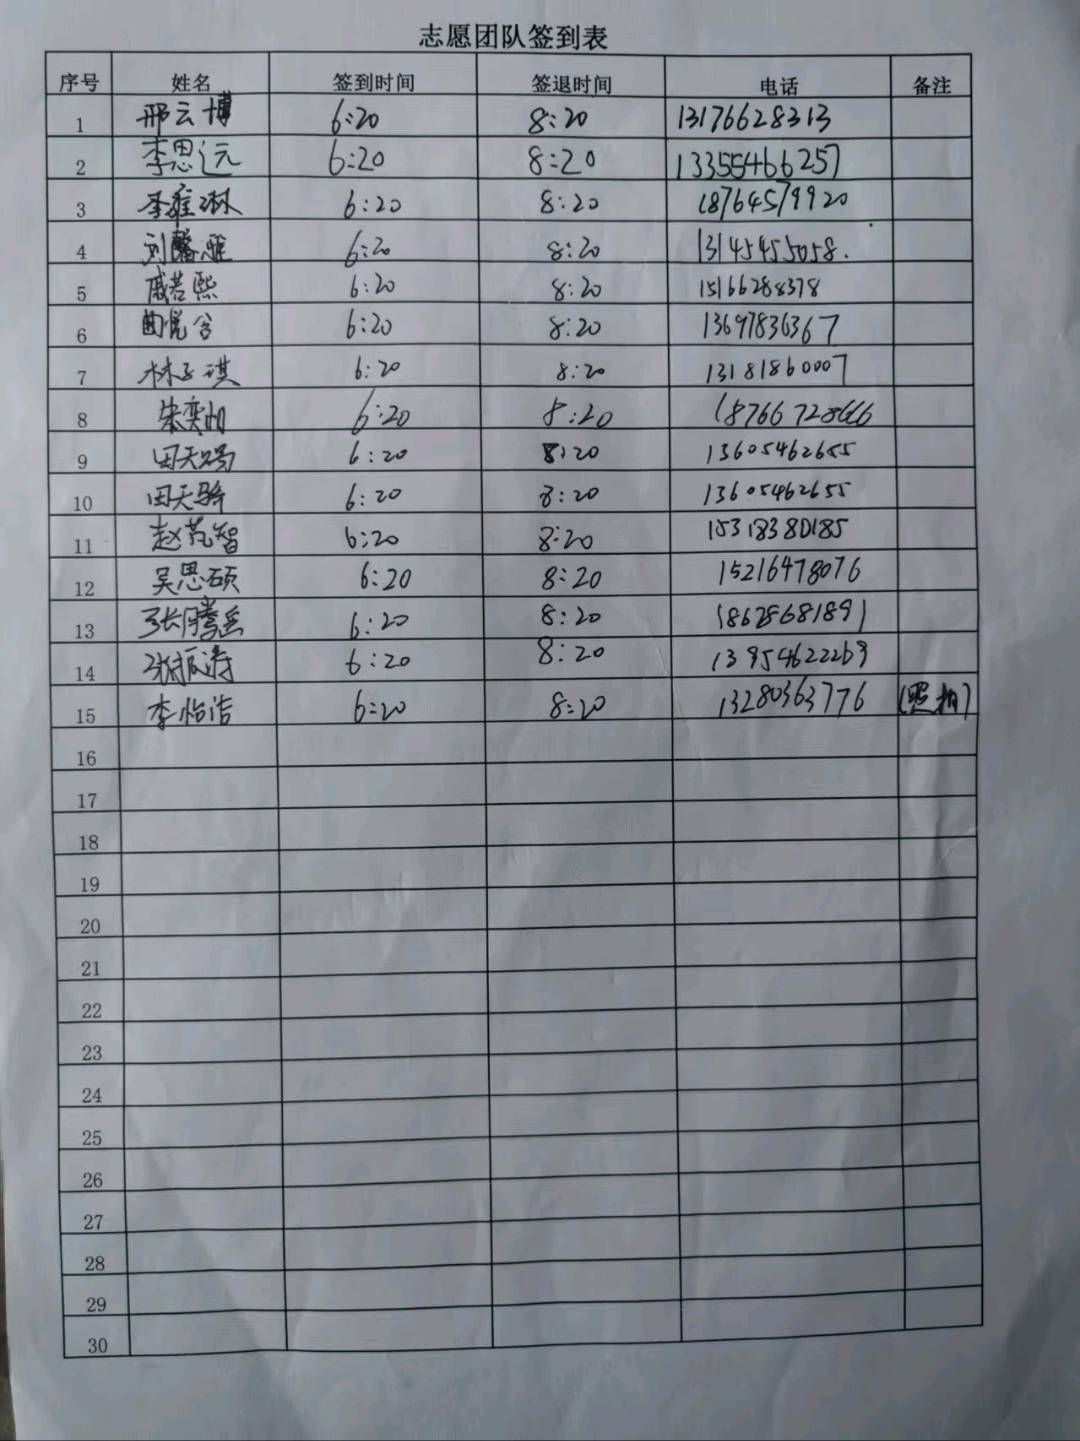 志愿团队签到表
序号 姓名 签到时间 签退时间 电话 备注
1 邢云博 6:20 8:20 13176628313
2 李思远 6:20 8:20 13355466257
3 李雅琳 6:20 8:20 18764579920
4 刘馨雅 6:20 8:20 13145455058.
5 戚若熙 6:20 8:20 15166288378
6 曲悦兮 6:20 8:20 13697836367
7 林子琪 6:20 8:20 13181860007
8 朱奕 6:20 8:20 18766728666
9 田天 6:20 8:20 13605462655
10 田天骄 6:20 8:20 13605462655
11 赵芃智 6:20 8:20 15318380185
12 吴思硕 6:20 8:20 15216478076
13 张腾 6:20 8:20 18628681891
14 张振涛 6:20 8:20 13954622269
15 李怡洁 6:20 8:20 13280363776 (照相)
16
17
18
19
20
21
22
23
24
25
26
27
28
29
30